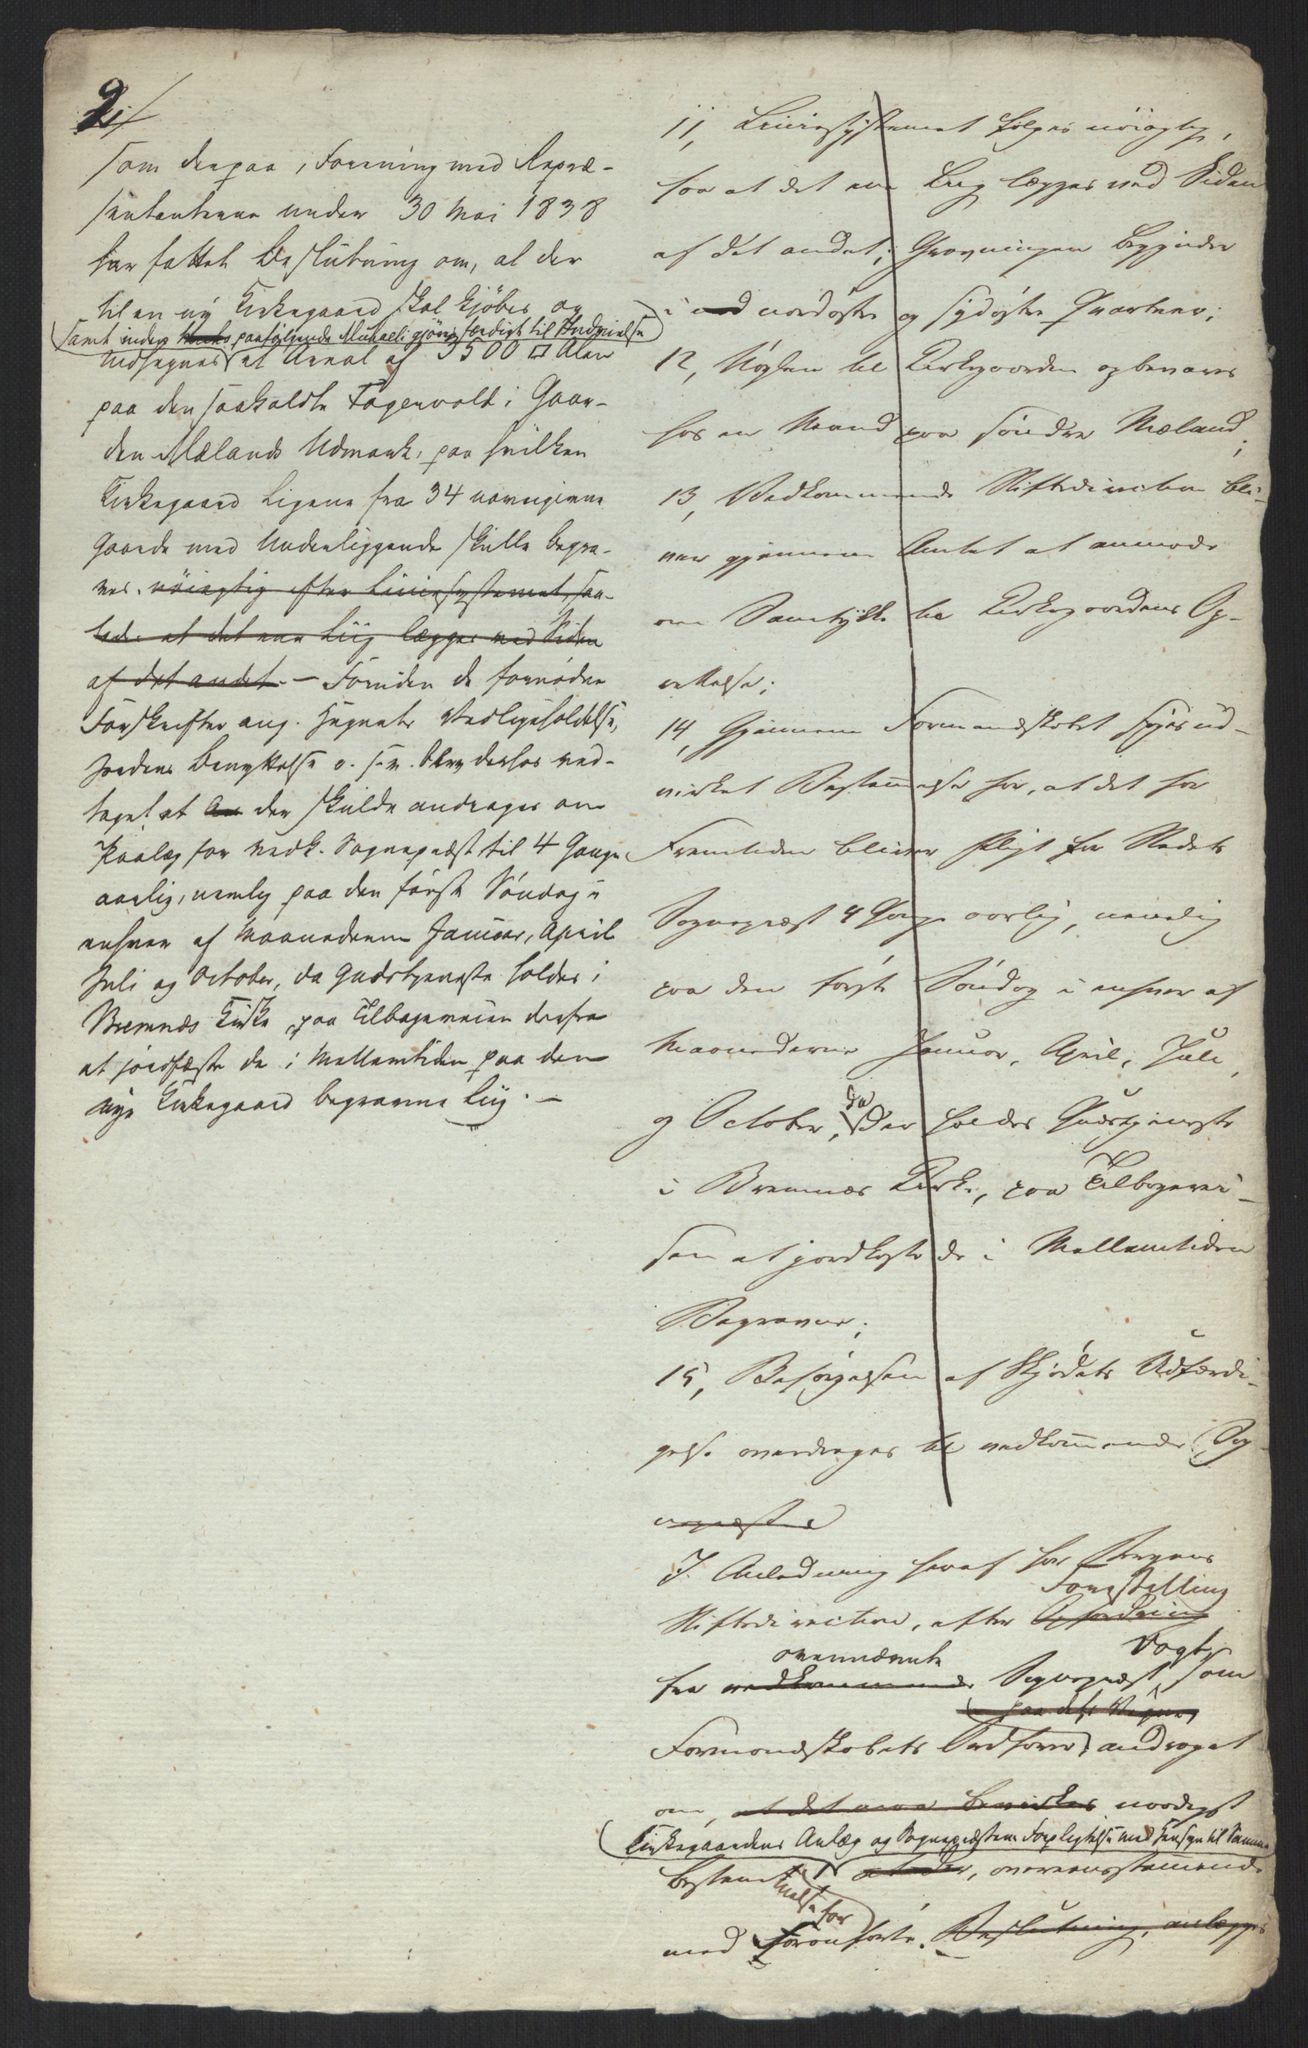 2/
som derpaa, i Forening med Repræ-
sentanterne under 30 Mai 1838
har fattet Beslutning om, at der
til en ny Kirkegaard skal kjøbes og
samt inden paafølgende Michaeli gjøres færdigt til Indvielse
indhegnes et Areal af 3500 □ Alen
paa den saakaldte Fagervold i Gaar-
den Mælands Udmark, paa hvilken
Kirkegaard Ligene fra 34 navngivne
Gaarde med Underliggende skulle begra-
ves. nöiagtig efter Liniesystemet, saa-
ledes at det ene Liig lægges ved Siden
af det andet. – Foruden de fornödne
Forskrifter ang. Hegnets Vedligeholdelse,
Jordens Benyttelse o. s. v. blev derhos ved-
taget at der skulde andrages om
Paalæg for vedk. Sognepræst til 4 Gange
aarlig, nemlig paa den første Söndag i
enhver af Maanederne Januar, April
Juli og October, da Gudstjeneste holdes i
Bremnæs Kirke, paa Tilbageveien derfra
at jordfæste de i Mellemtiden paa den
nye Kirkegaard begravne Liig. –
11, Liniesystemet følges nöiagtig,
saa at det ene Liig lægges ved Siden
af det andet; Gravningen begynder
i nordøstre og sydøstre Qvarteer;
12, Nøglen til Kirkegaarden opbevares
hos en Mand paa söndre Mæland;
13, Vedkommende Stiftsdirection bli-
ver gjennem Amtet at anmode
om Samtykke til Kirkegaardens Op-
rettelse;
14, Gjennem Formandskabet søges ud-
virket Bestemmelse for, at det for
Fremtiden bliver Pligt for Stedets
Sognepræst 4 Gange aarlig, nemlig
paa den første Söndag i enhver af
Maanederne Januar, April, Juli,
og October, da der holdes Gudstjeneste
i Bremnæs Kirke, paa Tilbagevei-
en at jordfæste de i Mellemtiden
Begravne;
15, Besörgelsen af Skjödets Udfærdi-
gelse overdrages til vedkommende Sog-
nepræst
I Anledning heraf har Bergens
Forestilling
Stiftsdirection, efter Opfordring
ovennævnte Vogt
fra vedkommende Sognepræst, som
paa dets Vegne
Formandskabets Ordfører, andraget
om, at det maa bevirkes naadigst
Kirkegaardens Anlæg og Sognepræstens Forpligtelse med Hensyn til Samme
bestemt at der, overensstemmende
melse for
med foranførte Beslutning, anlægges